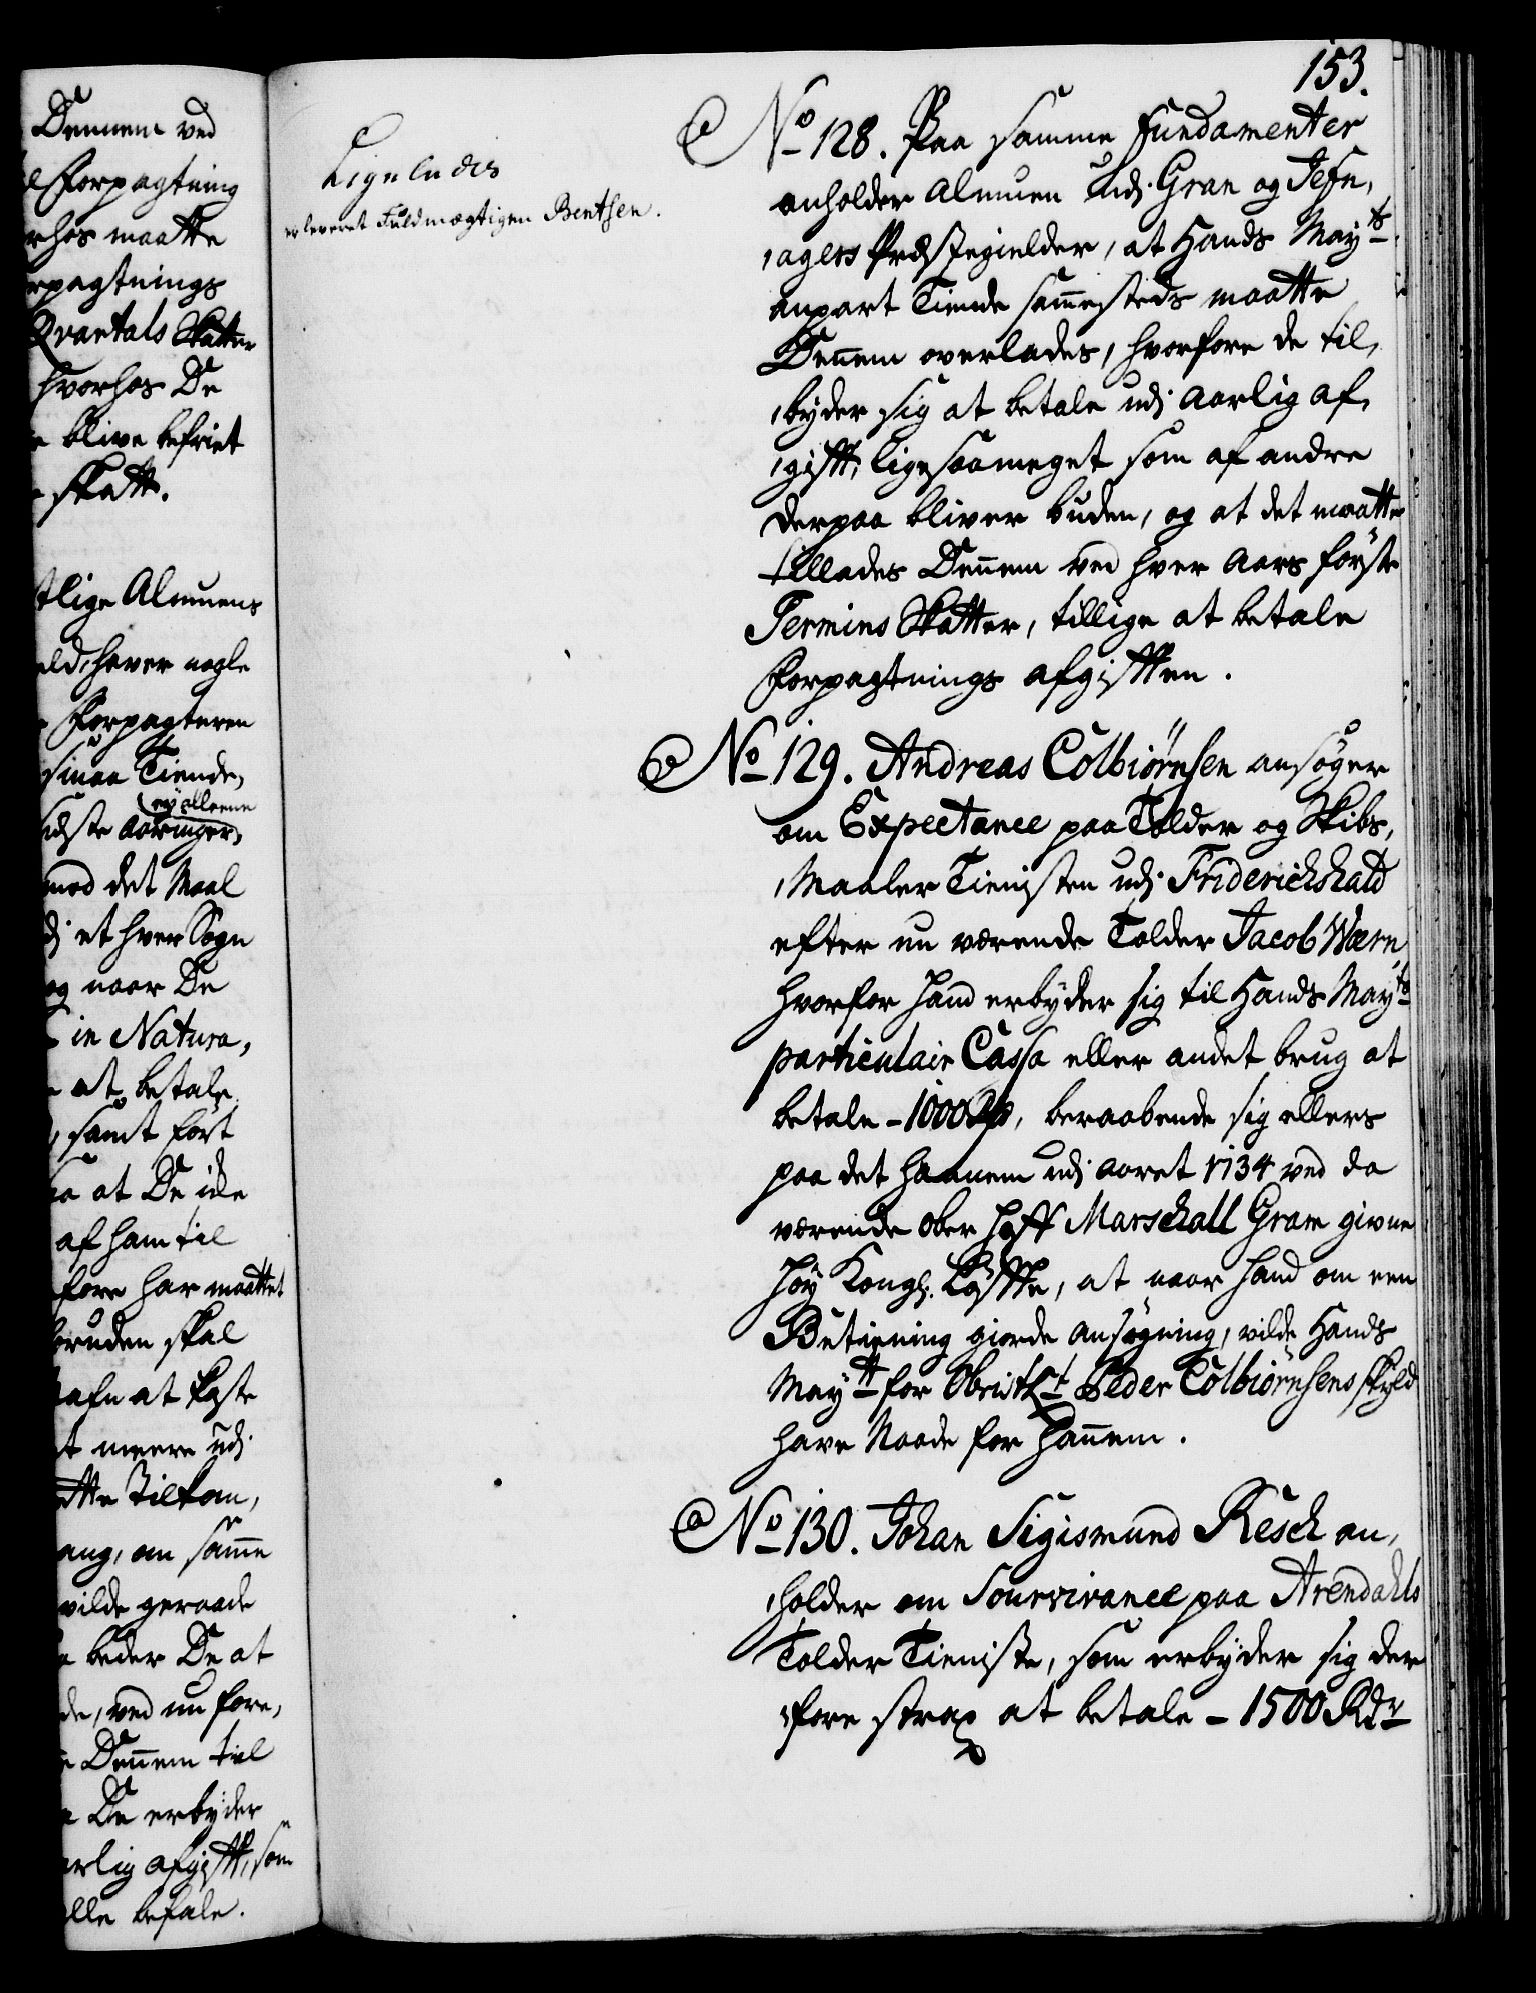 Dennem ved
Forpagtning
rhos maatte
rpagtnings
Qvartals Skatter
hvorhos De
blive befriet
skatt.
tlige Almuens
eld, haver nogle
Forpagteren
sinaa Tiende,
ey alleene
idste Aaringer,
mod det Maal
et hver Sogn
og naar De
in Natura,
at betale
samt fört
at De icke
af ham til
fore har maattet
bruden skal
at kaste
meere udi
Tilkom,
ang, om samme
vilde geraade
beder De at
de, ved nu fore,
Dennem til
De erbyder
arlig afgifft, som
lle befale.
153.
Ligeledes
er leveret Fuldmægtigen Bentsen.
No 128. Paa samme Fundamenter
anholder Almuen Udj Gran og Jefn,
,agers Præstegielder, at Hands Mayts
anpart Tiende sammesteds maatte
Dennem overlades, hvorfore de til,
,byder sig at betale udj Aarlig af,
,gifft, ligesaameget som af andre
derpaa bliver buden, og at det maatte
tillades Dennem ved hver Aars förste
Termins Skatter, tillige at betale
Forpagtnings afgifften.
No 129. Andreas Colbiörnsen ansöger
om Expectance paa Tolder og Skibs,
,Maaler Tienisten udj Friderichshald
efter nu værende Tolder Jacob Wærn,
hvorfor hand erbyder sig til Hands Mayts
particulair Cassa eller andet brug at
betale - 1000 Rdr, beraabende sig ellers
paa det hannem udj Aaret 1734 ved da
værende Ober Hoff Marschall Gram givne
höy Kongl. Löffte, at naar hand om een
Betiening giorde Ansögning, vilde Hands
Maytt for Obrist Lt Peder Colbiörnsens skyld
have Naade for hannem.
No 130. Johan Sigismund Resch an,
,holder om Sourvivance paa Arendahls
Tolder Tieniste, som erbyder sig der
,fore strax at betale - 1500 Rdr